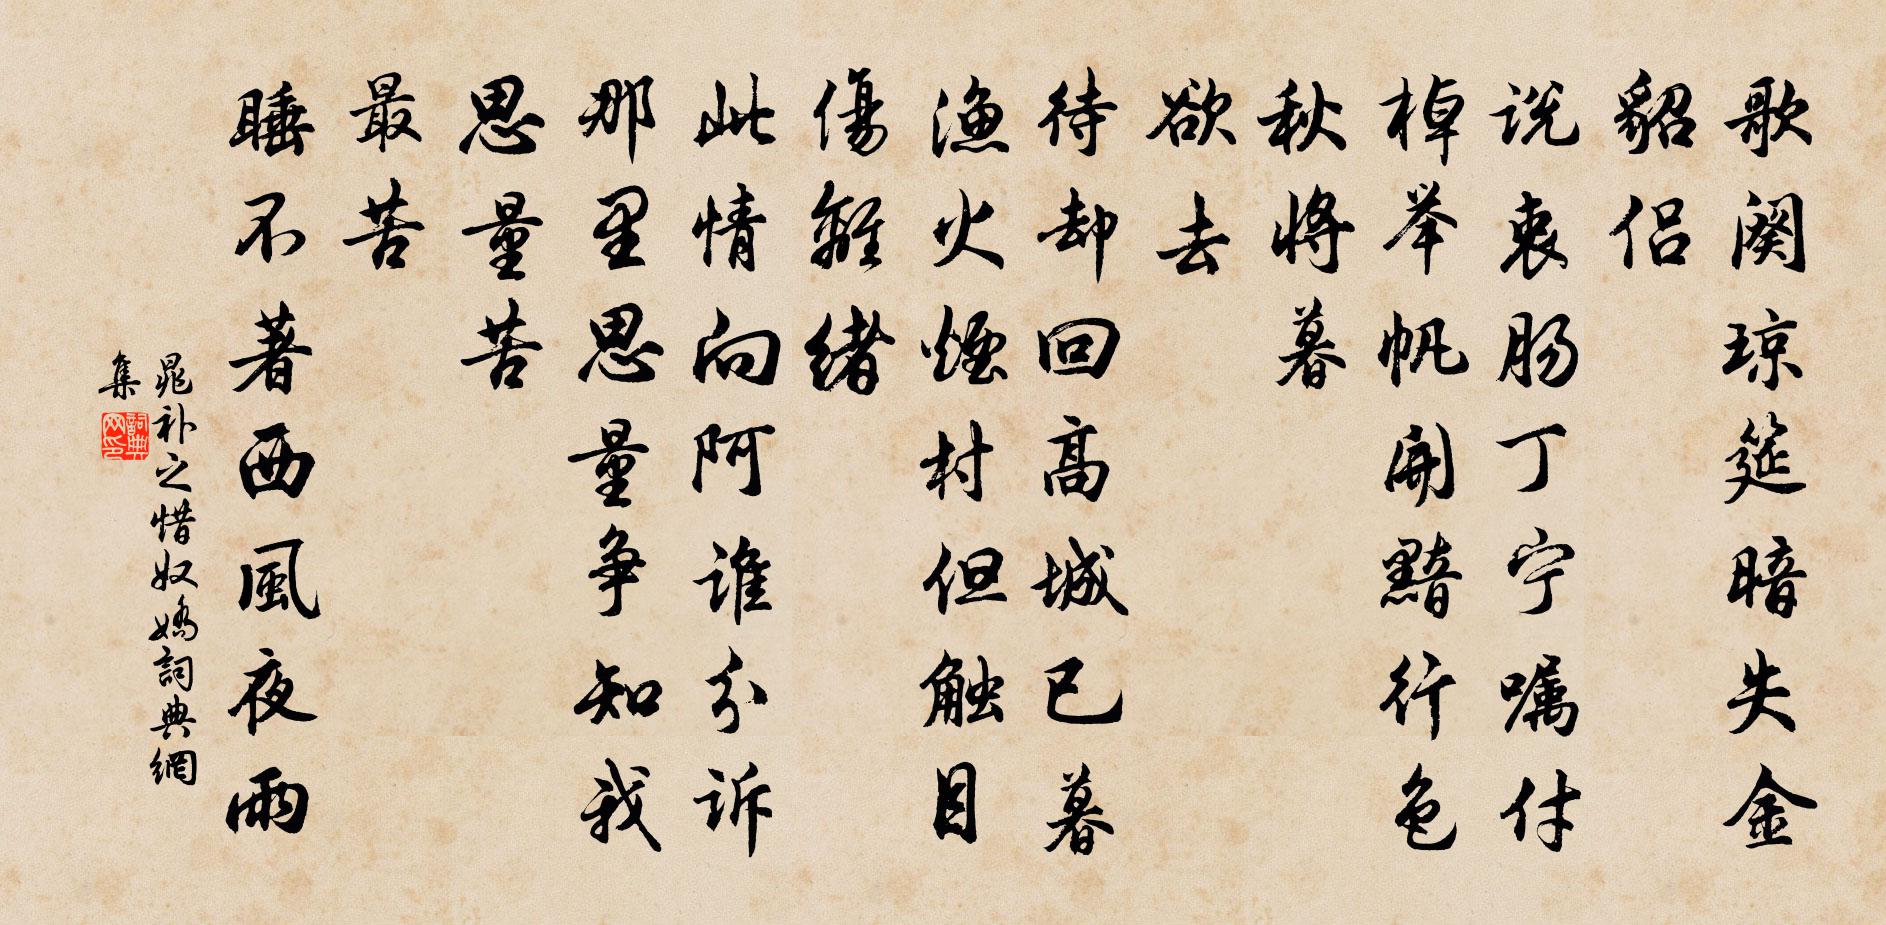 歌阕琼筵暗失金
貂侣
说衷肠丁宁嘱付
棹举帆開黯行色
秋将暮
欲去
待却回高城已暮
渔火煙村但触目
傷離緒
此情向阿谁分诉
那里思量争知我
思量苦
最苦
睡不著西風夜雨
晁补之惜奴嬌詞典網
集
詞典
网印